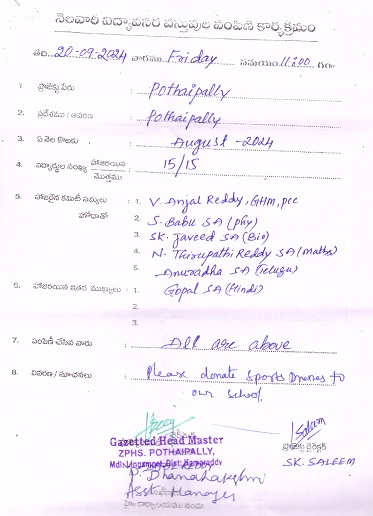 నెలవారీ విద్యావసర వస్తువుల పంపిణి కార్యక్రమం
తేది. 20-09-2024 వారము Friday సమయం 11:00 గం
1. ప్రాజెక్టు పేరు : Pothaipally
2. ప్రదేశము / ఆవరణ : Pothaipally
3. ఏ నెల కొఱకు : August - 2024
4. విద్యార్థుల సంఖ్య హాజరయిన / మొత్తము : 15/15
5. హాజరైన కమిటీ సభ్యులు : 1. V. Anjal Reddy, GHM, PCC
హోదాతో 2. S. Babu SA (phy)
3. SK. Javeed SA (Bio)
4. N. Thirupathi Reddy SA (Maths)
5. Anuradha SA (Telugu)
6. హాజరయిన ఇతర ముఖ్యులు : 1. Gopal SA (Hindi)
2.
3.
7. పంపిణీ చేసిన వారు : All are above
8. వివరణ / సూచనలు : Please donate Sports Dresses to
our school.
Saleem
Gazetted Head Master
ZPHS. POTHAIPALLY,
ప్రాజెక్టు డైరెక్టర్
SK. SALEEM
P. Dhanalakshmi
Asst. Manager